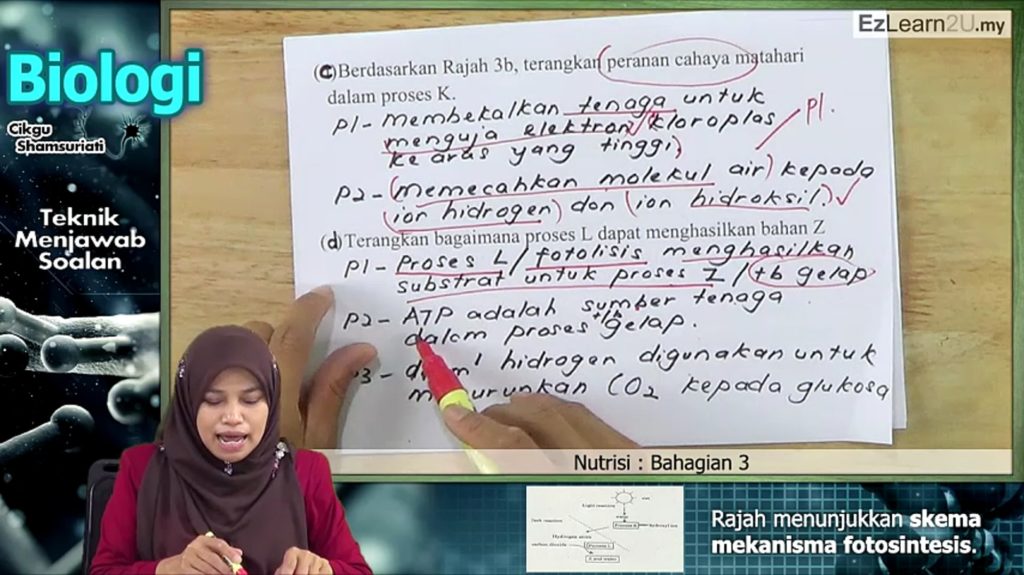 EzLearn2U.my
Biologi
Cikgu
Shamsuriati
Teknik
Menjawab
Soalan
(c) Berdasarkan Rajah 3b, terangkan peranan cahaya matahari
dalam proses K.
P1 - Membekalkan tenaga untuk
menguja elektron kloroplas
ke aras yang tinggi
P1.
P2 - (memecahkan molekul air) kepada
(ion hidrogen) dan (ion hidroksil.)
(d) Terangkan bagaimana proses L dapat menghasilkan bahan Z
P1 - Proses L / fotolisis menghasilkan
substrat untuk proses Z / tb gelap
P2 - ATP adalah sumber tenaga
dalam proses gelap.
P3 - hidrogen digunakan untuk
CO2 kepada glukosa
Nutrisi : Bahagian 3
Light reaction
Dark reaction
Hydrogen atom
carbon dioxide
Rajah menunjukkan skema
mekanisma fotosintesis.